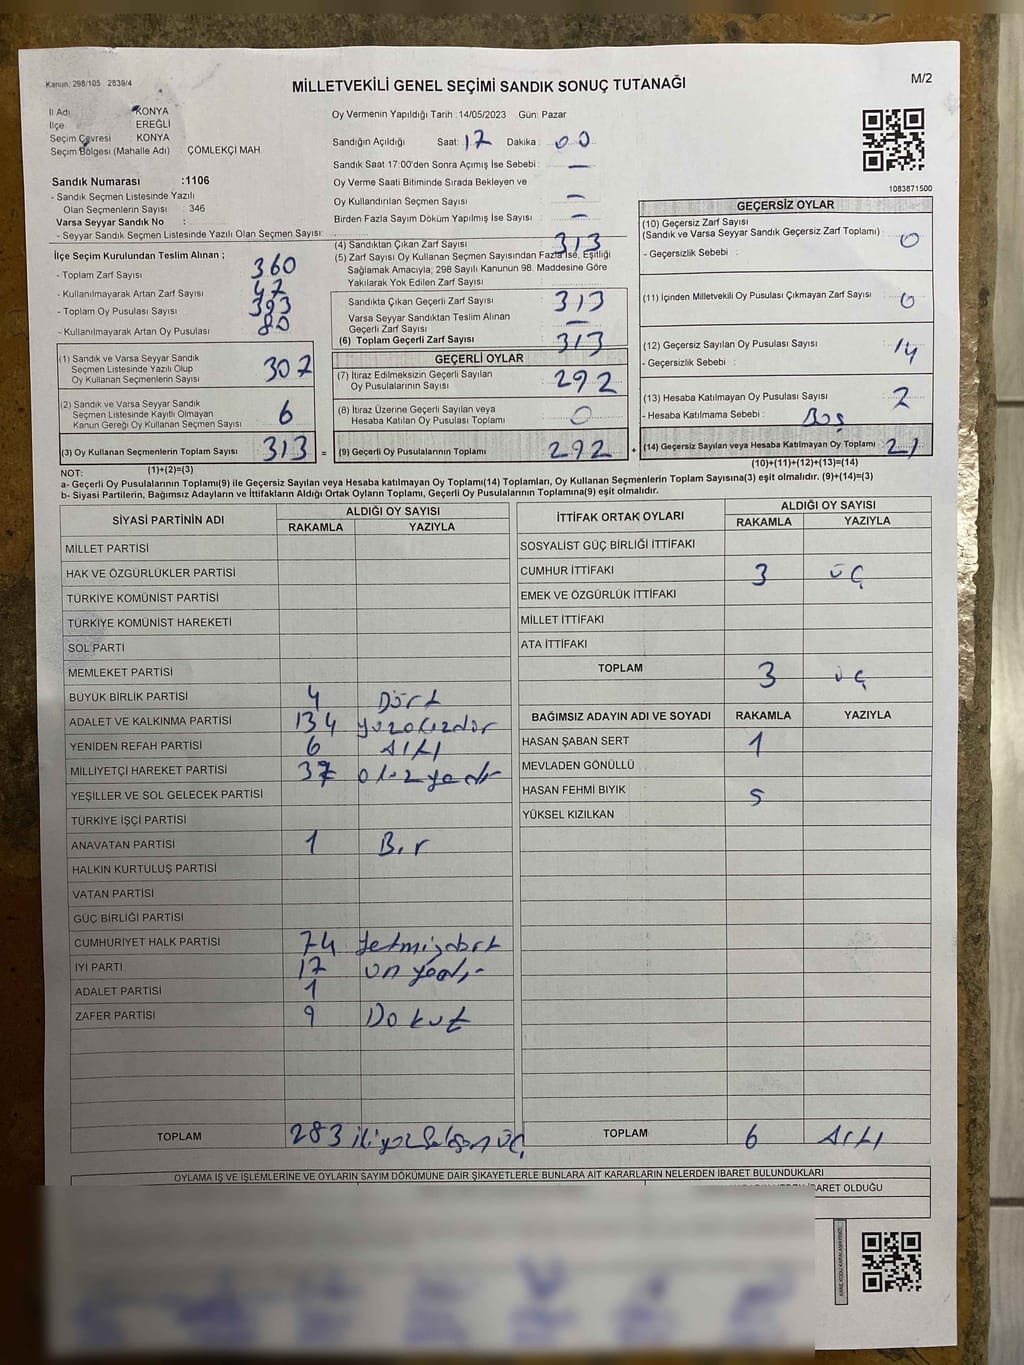 Kanun: 298/105 2839/4
MİLLETVEKİLİ GENEL SEÇİMİ SANDIK SONUÇ TUTANAĞI
M/2
İl Adı KONYA
İlçe EREĞLİ
Seçim Çevresi KONYA
Seçim Bölgesi (Mahalle Adı) : ÇÖMLEKÇİ MAH.
Sandık Numarası :1106
- Sandık Seçmen Listesinde Yazılı
Olan Seçmenlerin Sayısı : 346
Varsa Seyyar Sandık No :
- Seyyar Sandık Seçmen Listesinde Yazılı Olan Seçmen Sayısı:
Oy Vermenin Yapıldığı Tarih :14/05/2023 Gün: Pazar
Sandığın Açıldığı Saat: 17 Dakika : 00
Sandık Saat 17:00'den Sonra Açımış İse Sebebi : —
Oy Verme Saati Bitiminde Sırada Bekleyen ve
Oy Kullandırılan Seçmen Sayısı : —
Birden Fazla Sayım Döküm Yapılmış İse Sayısı : —
1083871500
İlçe Seçim Kurulundan Teslim Alınan ;
- Toplam Zarf Sayısı : 360
- Kullanılmayarak Artan Zarf Sayısı : 47
- Toplam Oy Pusulası Sayısı : 393
- Kullanılmayarak Artan Oy Pusulası : 80
(1) Sandık ve Varsa Seyyar Sandık
Seçmen Listesinde Yazılı Olup
Oy Kullanan Seçmenlerin Sayısı 307
(2) Sandık ve Varsa Seyyar Sandık
Seçmen Listesinde Kayıtlı Olmayan
Kanun Gereği Oy Kullanan Seçmen Sayısı 6
(3) Oy Kullanan Seçmenlerin Toplam Sayısı 313 =
(4) Sandıktan Çıkan Zarf Sayısı : 313
(5) Zarf Sayısı Oy Kullanan Seçmen Sayısından Fazla İse, Eşitliği
Sağlamak Amacıyla, 298 Sayılı Kanunun 98. Maddesine Göre
Yakılarak Yok Edilen Zarf Sayısı :
Sandıkta Çıkan Geçerli Zarf Sayısı : 313
Varsa Seyyar Sandıktan Teslim Alınan
Geçerli Zarf Sayısı : —
(6) Toplam Geçerli Zarf Sayısı : 313
GEÇERLİ OYLAR
(7) İtiraz Edilmeksizin Geçerli Sayılan
Oy Pusulalarının Sayısı : 292
(8) İtiraz Üzerine Geçerli Sayılan veya
Hesaba Katılan Oy Pusulası Toplamı : 0
(9) Geçerli Oy Pusulalarının Toplamı 292 +
GEÇERSİZ OYLAR
(10) Geçersiz Zarf Sayısı
(Sandık ve Varsa Seyyar Sandık Geçersiz Zarf Toplamı) : 0
- Geçersizlik Sebebi :
(11) İçinden Milletvekili Oy Pusulası Çıkmayan Zarf Sayısı : 0
(12) Geçersiz Sayılan Oy Pusulası Sayısı : 14
- Geçersizlik Sebebi :
(13) Hesaba Katılmayan Oy Pusulası Sayısı : 2
- Hesaba Katılmama Sebebi : Boş
(14) Geçersiz Sayılan veya Hesaba Katılmayan Oy Toplamı 21
NOT: (1)+(2)=(3)
(10)+(11)+(12)+(13)=(14)
a- Geçerli Oy Pusulalarının Toplamı(9) ile Geçersiz Sayılan veya Hesaba Katılmayan Oy Toplamı(14) Toplamları, Oy Kullanan Seçmenlerin Toplam Sayısına(3) eşit olmalıdır. (9)+(14)=(3)
b- Siyasi Partilerin, Bağımsız Adayların ve İttifakların Aldığı Ortak Oyların Toplamı, Geçerli Oy Pusulalarının Toplamına(9) eşit olmalıdır.
SİYASİ PARTİNİN ADI ALDIĞI OY SAYISI
RAKAMLA YAZIYLA
MİLLET PARTİSİ
HAK VE ÖZGÜRLÜKLER PARTİSİ
TÜRKİYE KOMÜNİST PARTİSİ
TÜRKİYE KOMÜNİST HAREKETİ
SOL PARTİ
MEMLEKET PARTİSİ
BÜYÜK BİRLİK PARTİSİ 4 Dört
ADALET VE KALKINMA PARTİSİ 134 yüzotuzdör
YENİDEN REFAH PARTİSİ 6 Altı
MİLLİYETÇİ HAREKET PARTİSİ 37 otuzyedi
YEŞİLLER VE SOL GELECEK PARTİSİ
TÜRKİYE İŞÇİ PARTİSİ
ANAVATAN PARTİSİ 1 Bir
HALKIN KURTULUŞ PARTİSİ
VATAN PARTİSİ
GÜÇ BİRLİĞİ PARTİSİ
CUMHURİYET HALK PARTİSİ 74 yetmişdört
İYİ PARTİ 17 on yedi
ADALET PARTİSİ 1
ZAFER PARTİSİ 9 Dokuz
TOPLAM 283 ikiyüzSeksen üç
İTTİFAK ORTAK OYLARI ALDIĞI OY SAYISI
RAKAMLA YAZIYLA
SOSYALİST GÜÇ BİRLİĞİ İTTİFAKI
CUMHUR İTTİFAKI 3 üÇ
EMEK VE ÖZGÜRLÜK İTTİFAKI
MİLLET İTTİFAKI
ATA İTTİFAKI
TOPLAM 3 üç
BAĞIMSIZ ADAYIN ADI VE SOYADI RAKAMLA YAZIYLA
HASAN ŞABAN SERT 1
MEVLADEN GÖNÜLLÜ
HASAN FEHMİ BIYIK 5
YÜKSEL KIZILKAN
TOPLAM 6 Altı
OYLAMA İŞ VE İŞLEMLERİNE VE OYLARIN SAYIM DÖKÜMÜNE DAİR ŞİKAYETLERLE BUNLARA AİT KARARLARIN NELERDEN İBARET BULUNDUKLARI
İBARET OLDUĞU